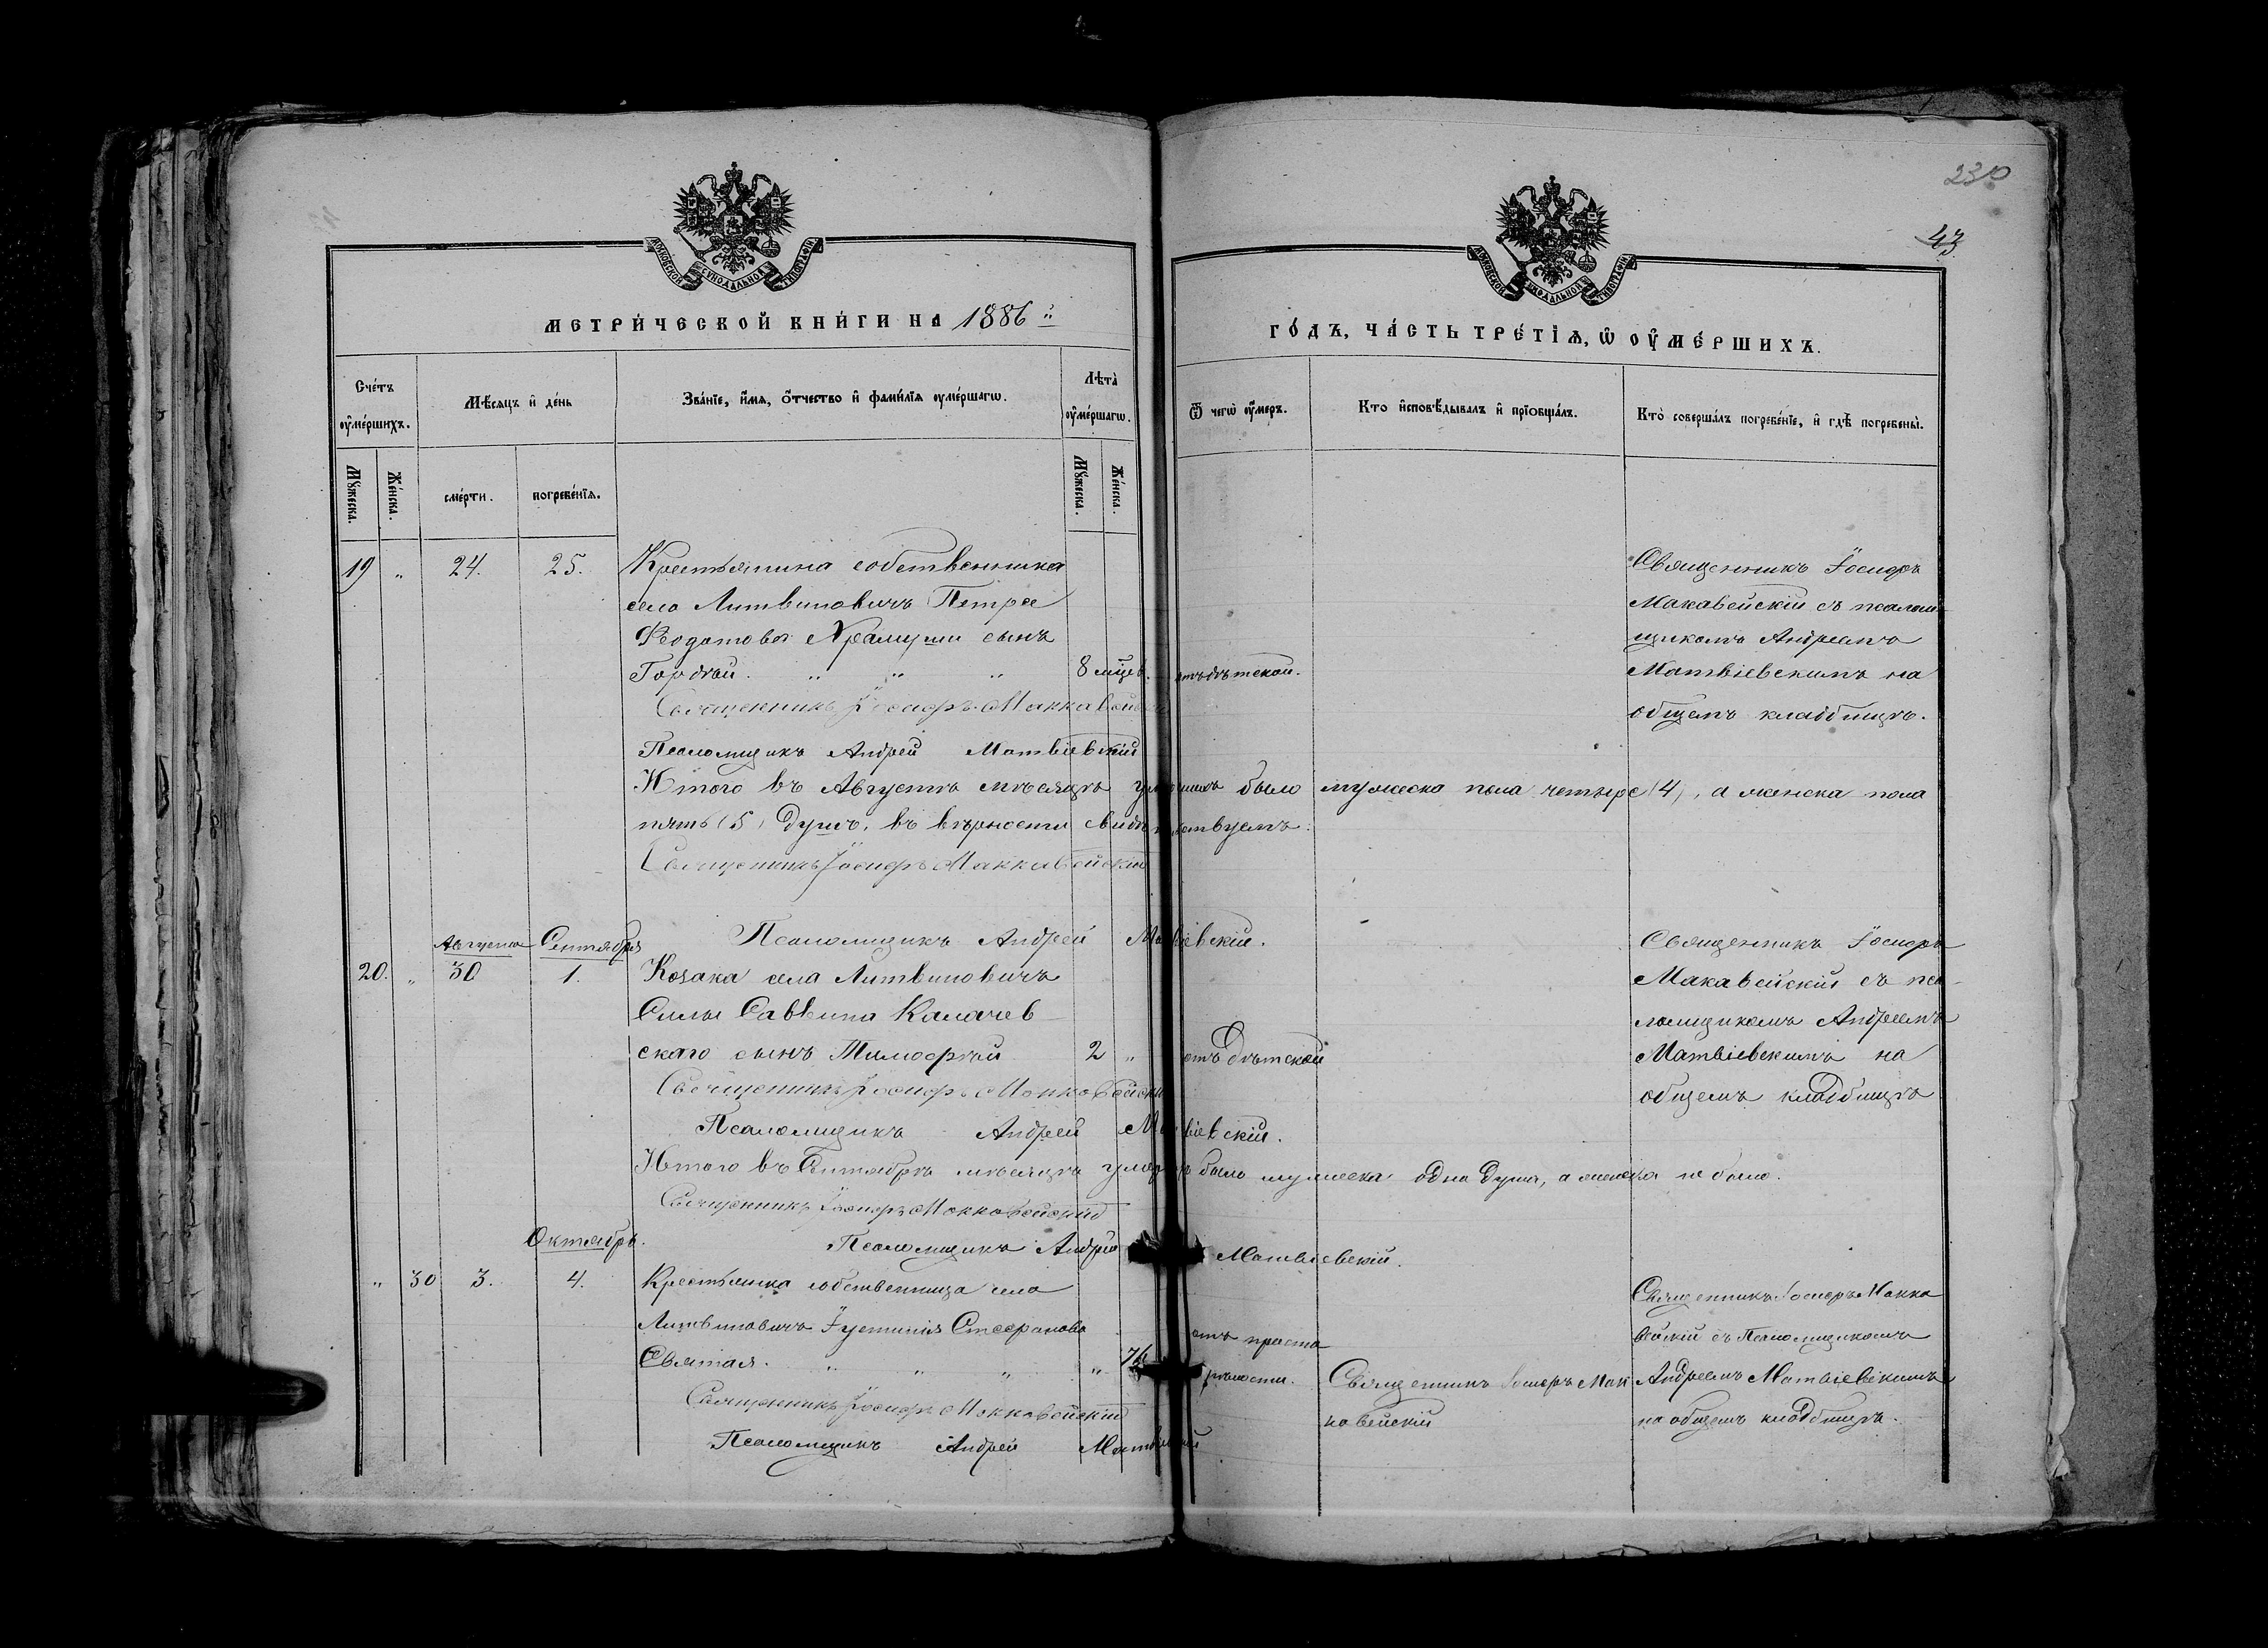 230
43
МОСКОВСКОЙ СѴНОДАЛЬНОЙ ТИПОГРАФІИ
МОСКОВСКОЙ СѴНОДАЛЬНОЙ ТИПОГРАФІИ
МЕТРИ́ЧЕСКОЙ КНИ́ГИ НА 1886 й
ГО́ДЪ, ЧА́СТЬ ТРЕ́ТІѦ, Ѡ ОУ҆МЕ́РШИХЪ.
Сче́тъ оу҆ме́ршихъ.
Мѣ́сяцъ и҆ де́нь
Зва́нїе, и҆́мѧ, ѻ҆́тчество и҆ фами́лїѧ оу҆ме́ршагѡ.
Лѣта̀ оу҆ме́ршагѡ.
Ѿ чегѡ̀ оу҆́меръ.
Кто и҆сповѣ́дывалъ и҆ прїобща́лъ.
Кто̀ соверша́лъ погребе́нїе, и҆ гдѣ̀ погребены̀.
Мꙋ́жеска.
Же́нска.
сме́рти.
погребе́нїѧ.
Мꙋ́жеска.
Же́нска.
19 " 24. 25. Крестьянина собственника
села Литвиновичъ Петра
Ѳеодотова Храмуши сынъ
Гордѣй. " " " 8 мцев. отъ дѣтской.
Священникъ Іосифъ
Макавейскій съ псалом-
щикомъ Андреемъ
Матвіевскимъ на
общемъ кладбищѣ.
Священникъ Іосифъ Маккавейскій
Псаломщикъ Андрей Матвіевскій
Итого въ Августѣ мѣсяцѣ умершихъ было мужеска пола четыре (4), а женска пола
пять (5) душъ, въ вѣрности свидѣтельствуемъ:
Священникъ Іосифъ Маккавейскій
Псаломщикъ Андрей Матвіевскій.
Августа Сентября
20. " 30 1. Козака села Литвиновичъ
Силы Саввина Калачев-
скаго сынъ Тимофѣй 2 " отъ дѣтской
Священникъ Іосифъ
Макавейскій съ пса-
ломщикомъ Андреемъ
Матвіевскимъ на
общемъ кладбищѣ
Священникъ Іосифъ Маккавейскій
Псаломщикъ Андрей Матвіевскій.
Итого въ Сентябрѣ мѣсяцѣ было мужеска одна душа, а женска не было.
Священникъ Іосифъ Маккавейскій
Псаломщикъ Андрей Матвіевскій.
Октябрь.
" 30 3. 4. Крестьянка собственница села
Литвиновичъ Іустинія Стефанова
Святая. " " " " отъ старости.
Священникъ Іосифъ Маккавейскій
Священникъ Іосифъ Макка
вейскій съ Псаломщикомъ
Андреемъ Матвіевскимъ
на общемъ кладбищѣ.
Священникъ Іосифъ Маккавейскій
Псаломщикъ Андрей Матвіевскій